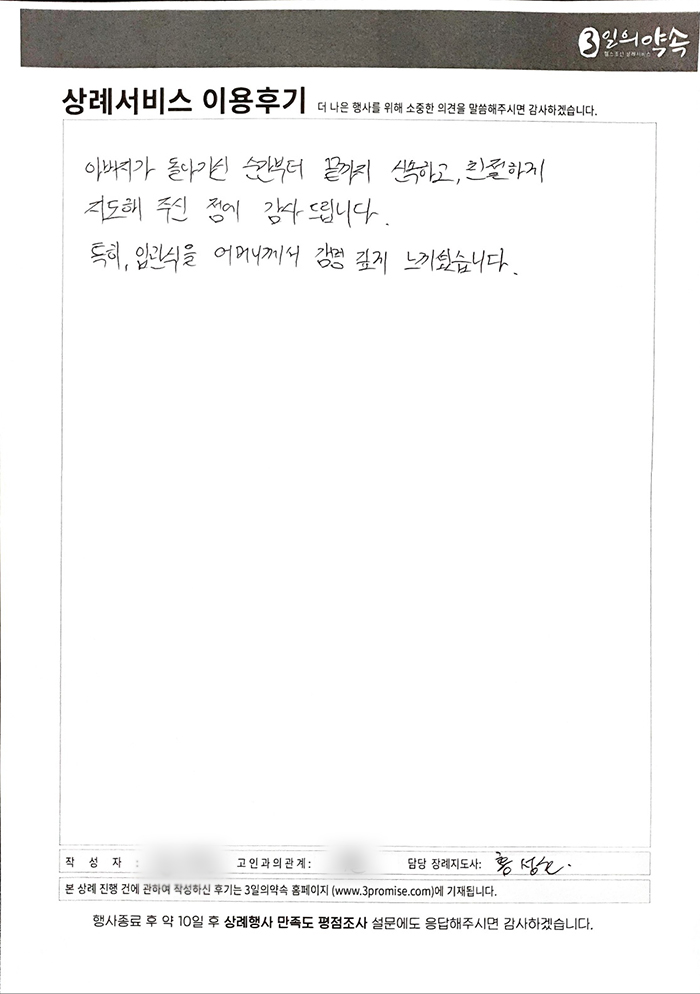 3일의약속
헬스조선 상례서비스
상례서비스 이용후기 더 나은 행사를 위해 소중한 의견을 말씀해주시면 감사하겠습니다.
아버지가 돌아가신 순간부터 끝까지 신속하고, 친절하게
지도해 주신 점에 감사 드립니다.
특히, 입관식을 어머니께서 감명 깊게 느끼셨습니다.
작 성 자 : 고인과의관계: 담당 장례지도사: 홍성
본 상례 진행 건에 관하여 작성하신 후기는 3일의약속 홈페이지 (www.3promise.com)에 기재됩니다.
행사종료 후 약 10일 후 상례행사 만족도 평점조사 설문에도 응답해주시면 감사하겠습니다.